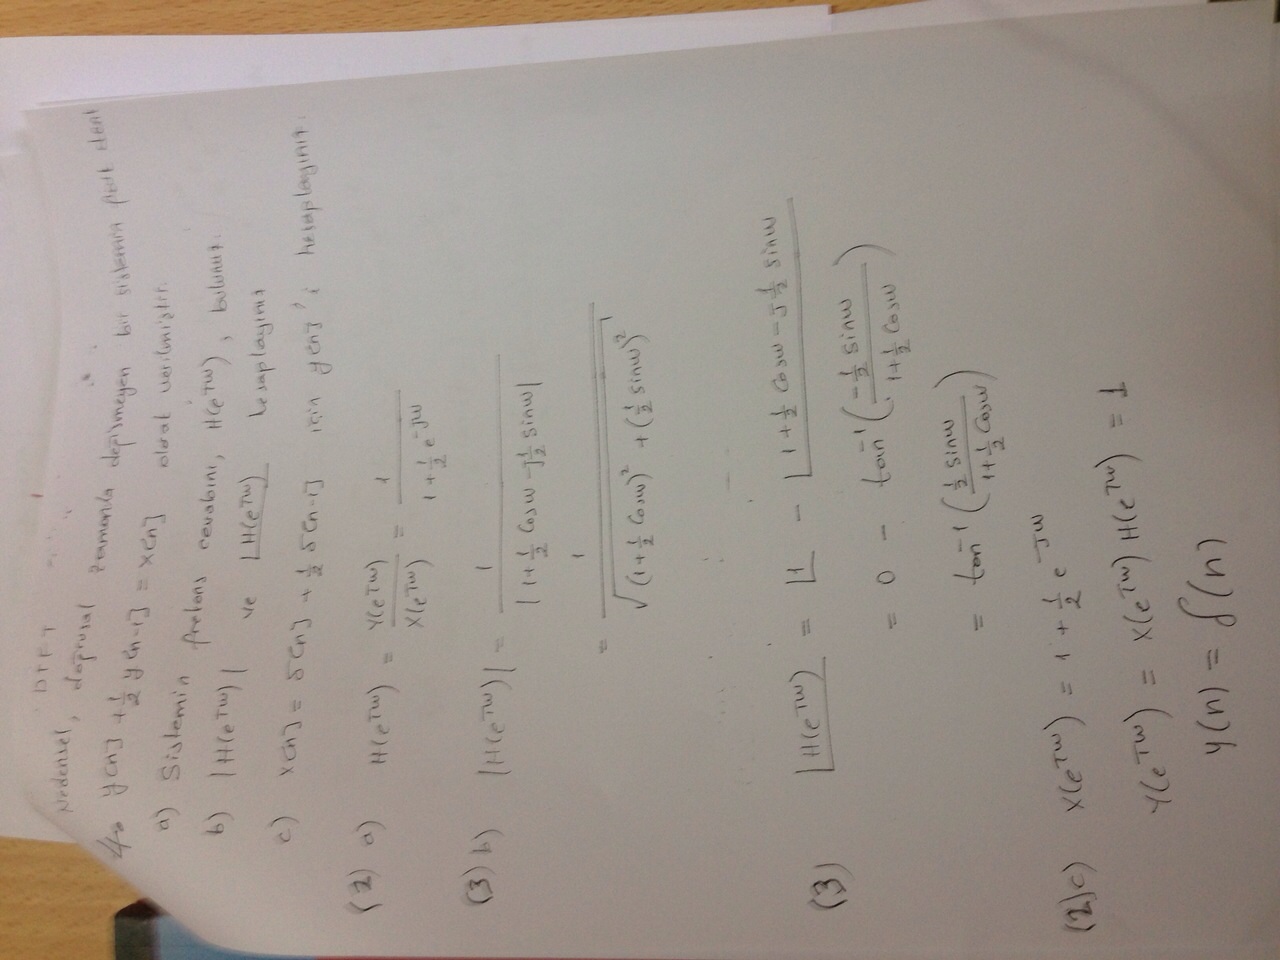 DTFT
Nedensel, doğrusal zamanla değişmeyen bir sistemin fark denk
4- y[n] + 1/2 y[n-1] = x[n] olarak verilmiştir.
a) Sistemin frekans cevabını, H(e^jw), bulunuz.
b) |H(e^jw)| ve ∠H(e^jw) hesaplayınız
c) x[n] = δ[n] + 1/2 δ[n-1] için y[n]'i hesaplayınız.
(2) a) H(e^jw) = Y(e^jw)/X(e^jw) = 1/(1 + 1/2 e^-jw)
(3) b) |H(e^jw)| = 1/|1 + 1/2 cosw - j 1/2 sinw|
= 1/√((1 + 1/2 cosw)^2 + (1/2 sinw)^2)
(3) ∠H(e^jw) = ∠1 - ∠1 + 1/2 cosw - j 1/2 sinw
= 0 - tan^-1((-1/2 sinw)/(1 + 1/2 cosw))
= tan^-1((1/2 sinw)/(1 + 1/2 cosw))
(2) c) X(e^jw) = 1 + 1/2 e^-jw
Y(e^jw) = X(e^jw) H(e^jw) = 1
y(n) = δ(n)